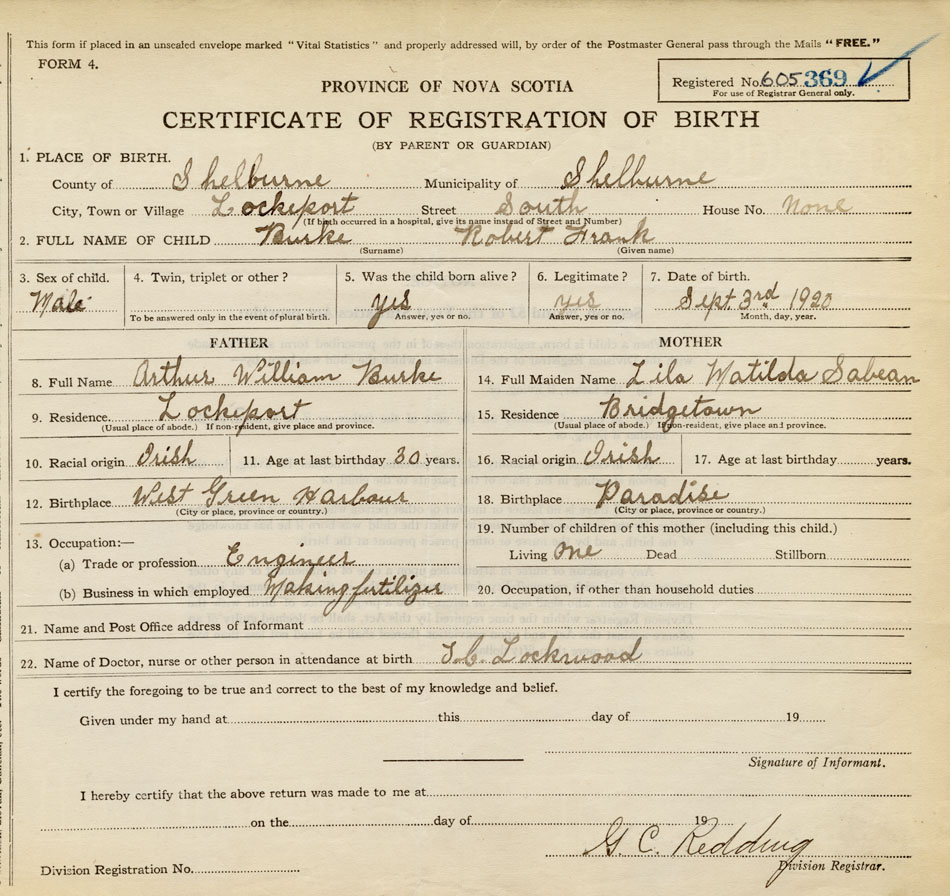 This form if placed in an unsealed envelope marked "Vital Statistics" and properly addressed will, by order of the Postmaster General pass through the Mails "FREE."
FORM 4.
Registered No. 605369
For use of Registrar General only.
PROVINCE OF NOVA SCOTIA
CERTIFICATE OF REGISTRATION OF BIRTH
(BY PARENT OR GUARDIAN)
1. PLACE OF BIRTH.
County of Shelburne Municipality of Shelburne
City, Town or Village Lockeport Street South House No. None
(If birth occurred in a hospital, give its name instead of Street and Number)
2. FULL NAME OF CHILD Burke Robert Frank
(Surname) (Given name)
3. Sex of child. 4. Twin, triplet or other? 5. Was the child born alive? 6. Legitimate? 7. Date of birth.
Male yes yes Sept. 3rd 1920
To be answered only in the event of plural birth. Answer, yes or no. Answer, yes or no. Month, day, year.
FATHER MOTHER
8. Full Name Arthur William Burke 14. Full Maiden Name Lila Matilda Sabean
9. Residence. Lockeport 15. Residence Bridgetown
(Usual place of abode.) If non-resident, give place and province. (Usual place of abode.) If non-resident, give place and province.
10. Racial origin Irish 11. Age at last birthday 30 years. 16. Racial origin Irish 17. Age at last birthday years.
12. Birthplace West Green Harbour 18. Birthplace Paradise
(City or place, province or country.) (City or place, province or country.)
13. Occupation:— 19. Number of children of this mother (including this child.)
(a) Trade or profession Engineer Living one Dead Stillborn
(b) Business in which employed Making fertilizer 20. Occupation, if other than household duties
21. Name and Post Office address of Informant
22. Name of Doctor, nurse or other person in attendance at birth Lockwood
I certify the foregoing to be true and correct to the best of my knowledge and belief.
Given under my hand at this day of 19
Signature of Informant.
I hereby certify that the above return was made to me at
on the day of 19
G. C. Redding
Division Registrar.
Division Registration No.